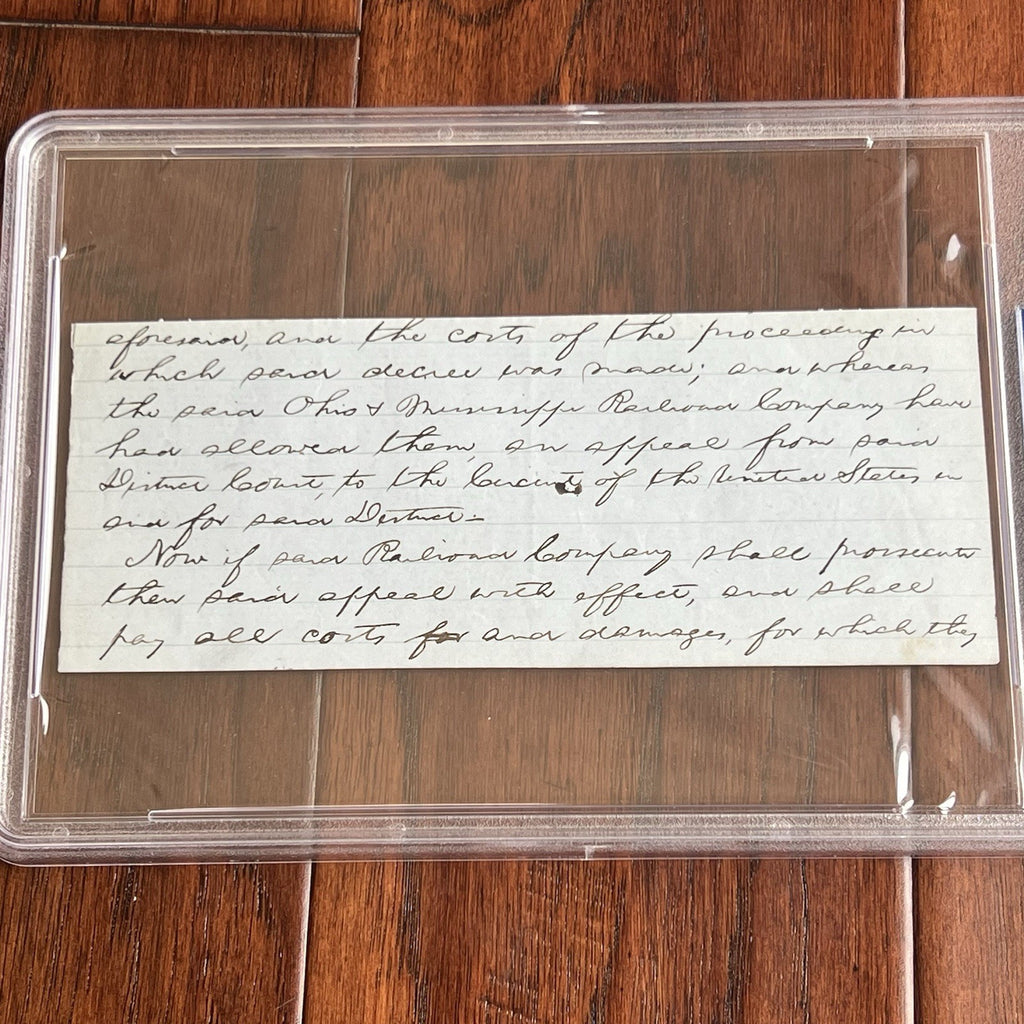 aforesaid, and the costs of the proceeding in
which said decree was made; and whereas
the said Ohio & Mississippi Railroad Company have
had allowed them, an appeal from said
District Court, to the Circuit of the United States in
and for said District:—
Now if said Railroad Company shall prosecute
their said appeal with effect, and shall
pay all costs for and damages, for which they